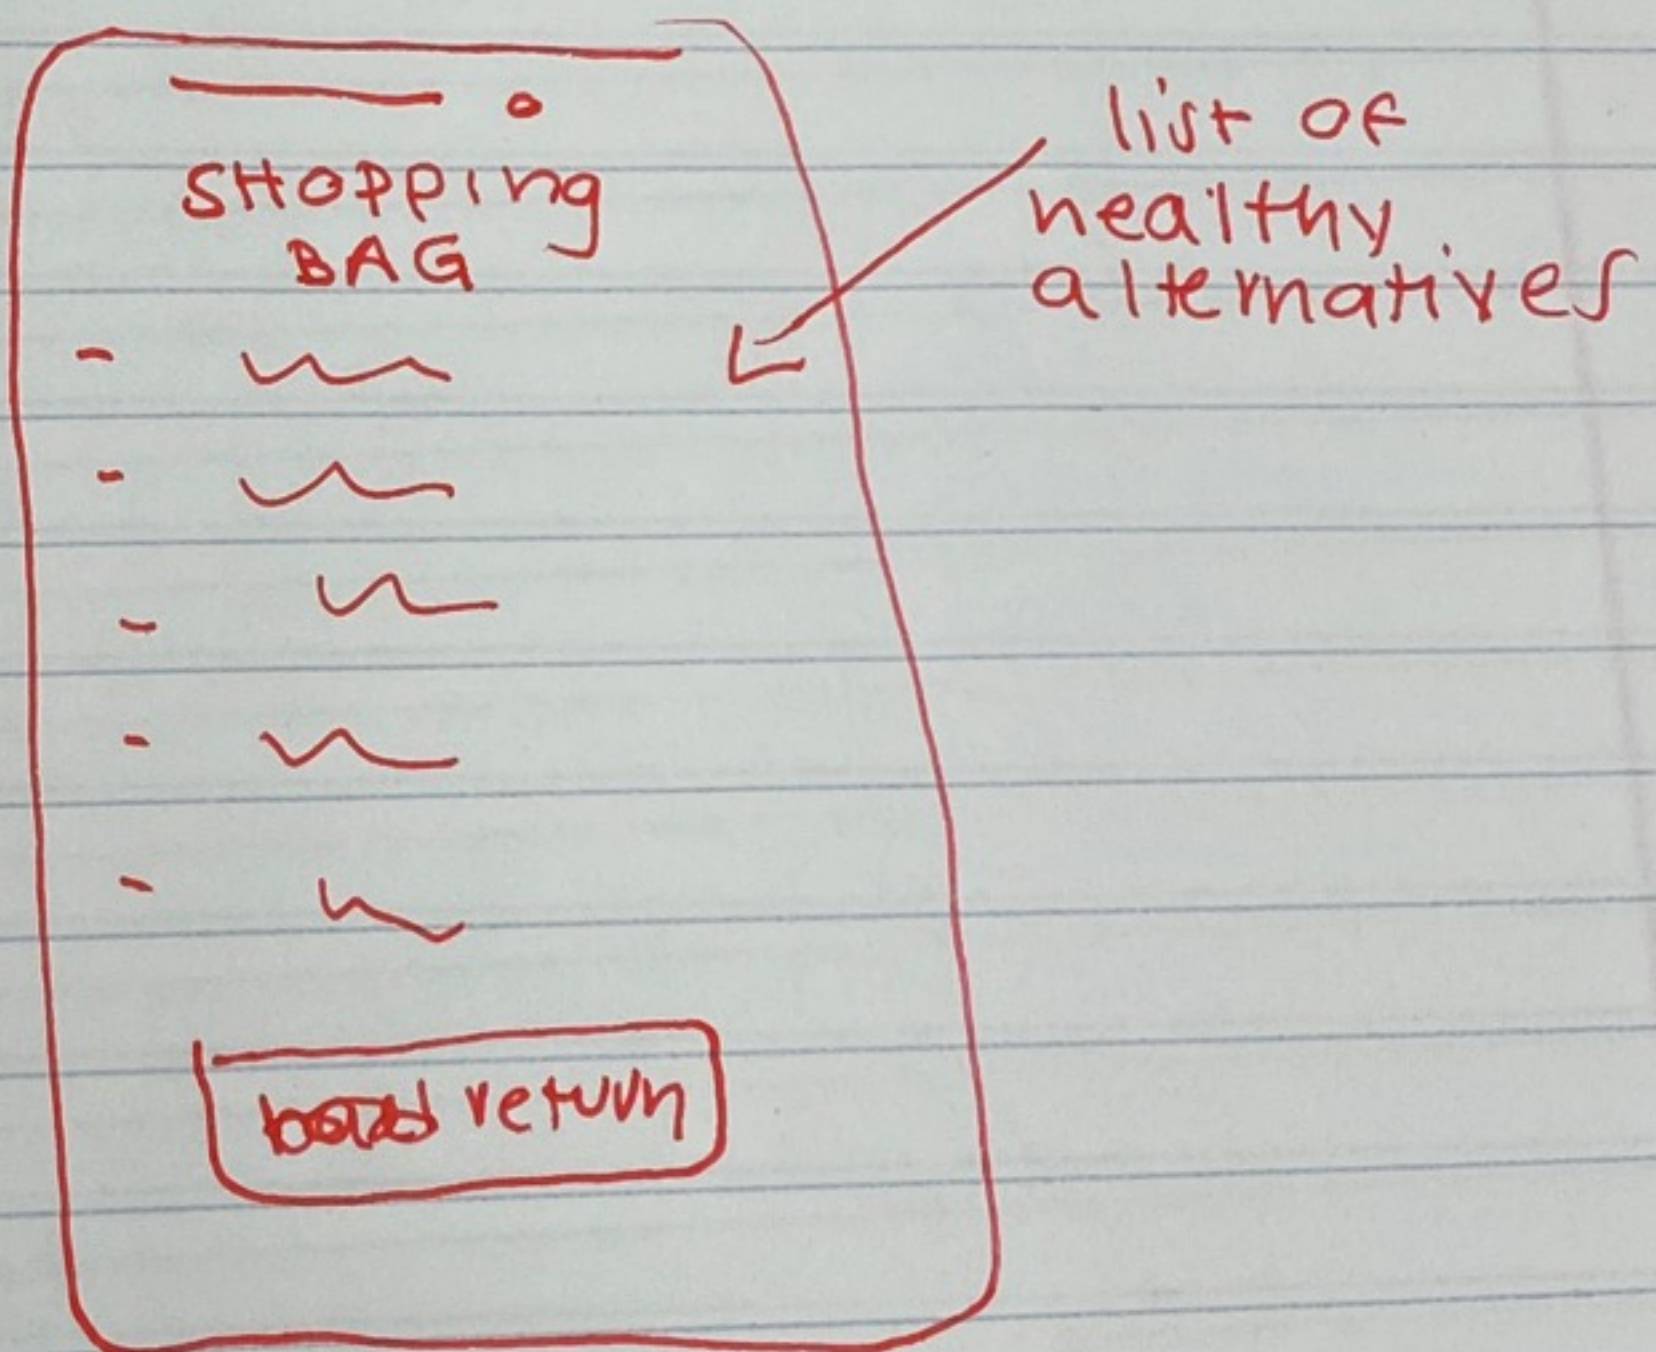 SHOPPing
BAG
list of
healthy
alternatives
-
-
-
-
-
return